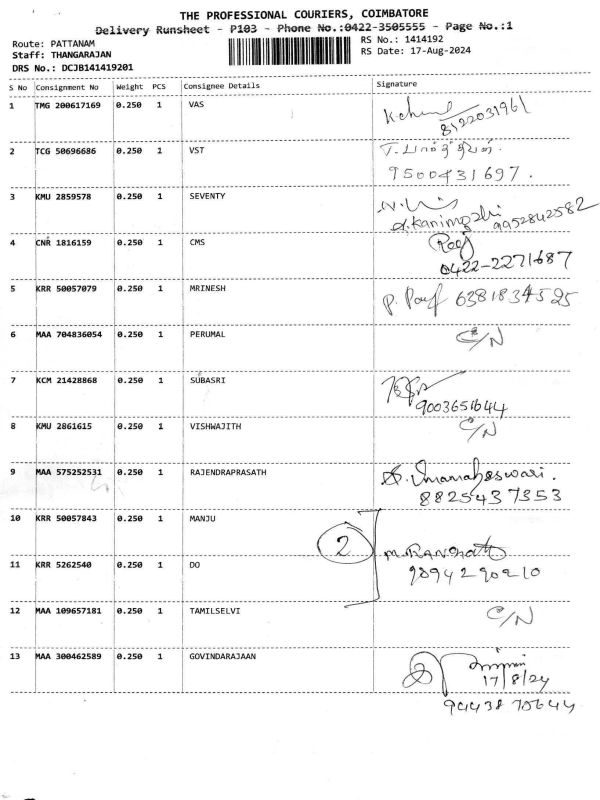 THE PROFESSIONAL COURIERS, COIMBATORE
Delivery Runsheet - P103 - Phone No.:0422-3505555 - Page No.:1
Route: PATTANAM
RS No.: 1414192
Staff: THANGARAJAN
RS Date: 17-Aug-2024
DRS No.: DCJB141419201
S No Consignment No Weight PCS Consignee Details Signature
1 TMG 200617169 0.250 1 VAS
8122031961
2 TCG 50696686 0.250 1 VST
9500431697.
3 KMU 2859578 0.250 1 SEVENTY
Kanimozhi 9952842582
4 CNR 1816159 0.250 1 CMS
0422-2271687
5 KRR 50057079 0.250 1 MRINESH P. 6381834525
6 MAA 704836054 0.250 1 PERUMAL C/N
7 KCM 21428868 0.250 1 SUBASRI
9003651644
8 KMU 2861615 0.250 1 VISHWAJITH C/N
9 MAA 575252531 0.250 1 RAJENDRAPRASATH S. Umamaheswari.
8825437353
10 KRR 50057843 0.250 1 MANJU
2
11 KRR 5262540 0.250 1 DO
9894290210
12 MAA 109657181 0.250 1 TAMILSELVI C/N
13 MAA 300462589 0.250 1 GOVINDARAJAAN
17/8/24
9443870644